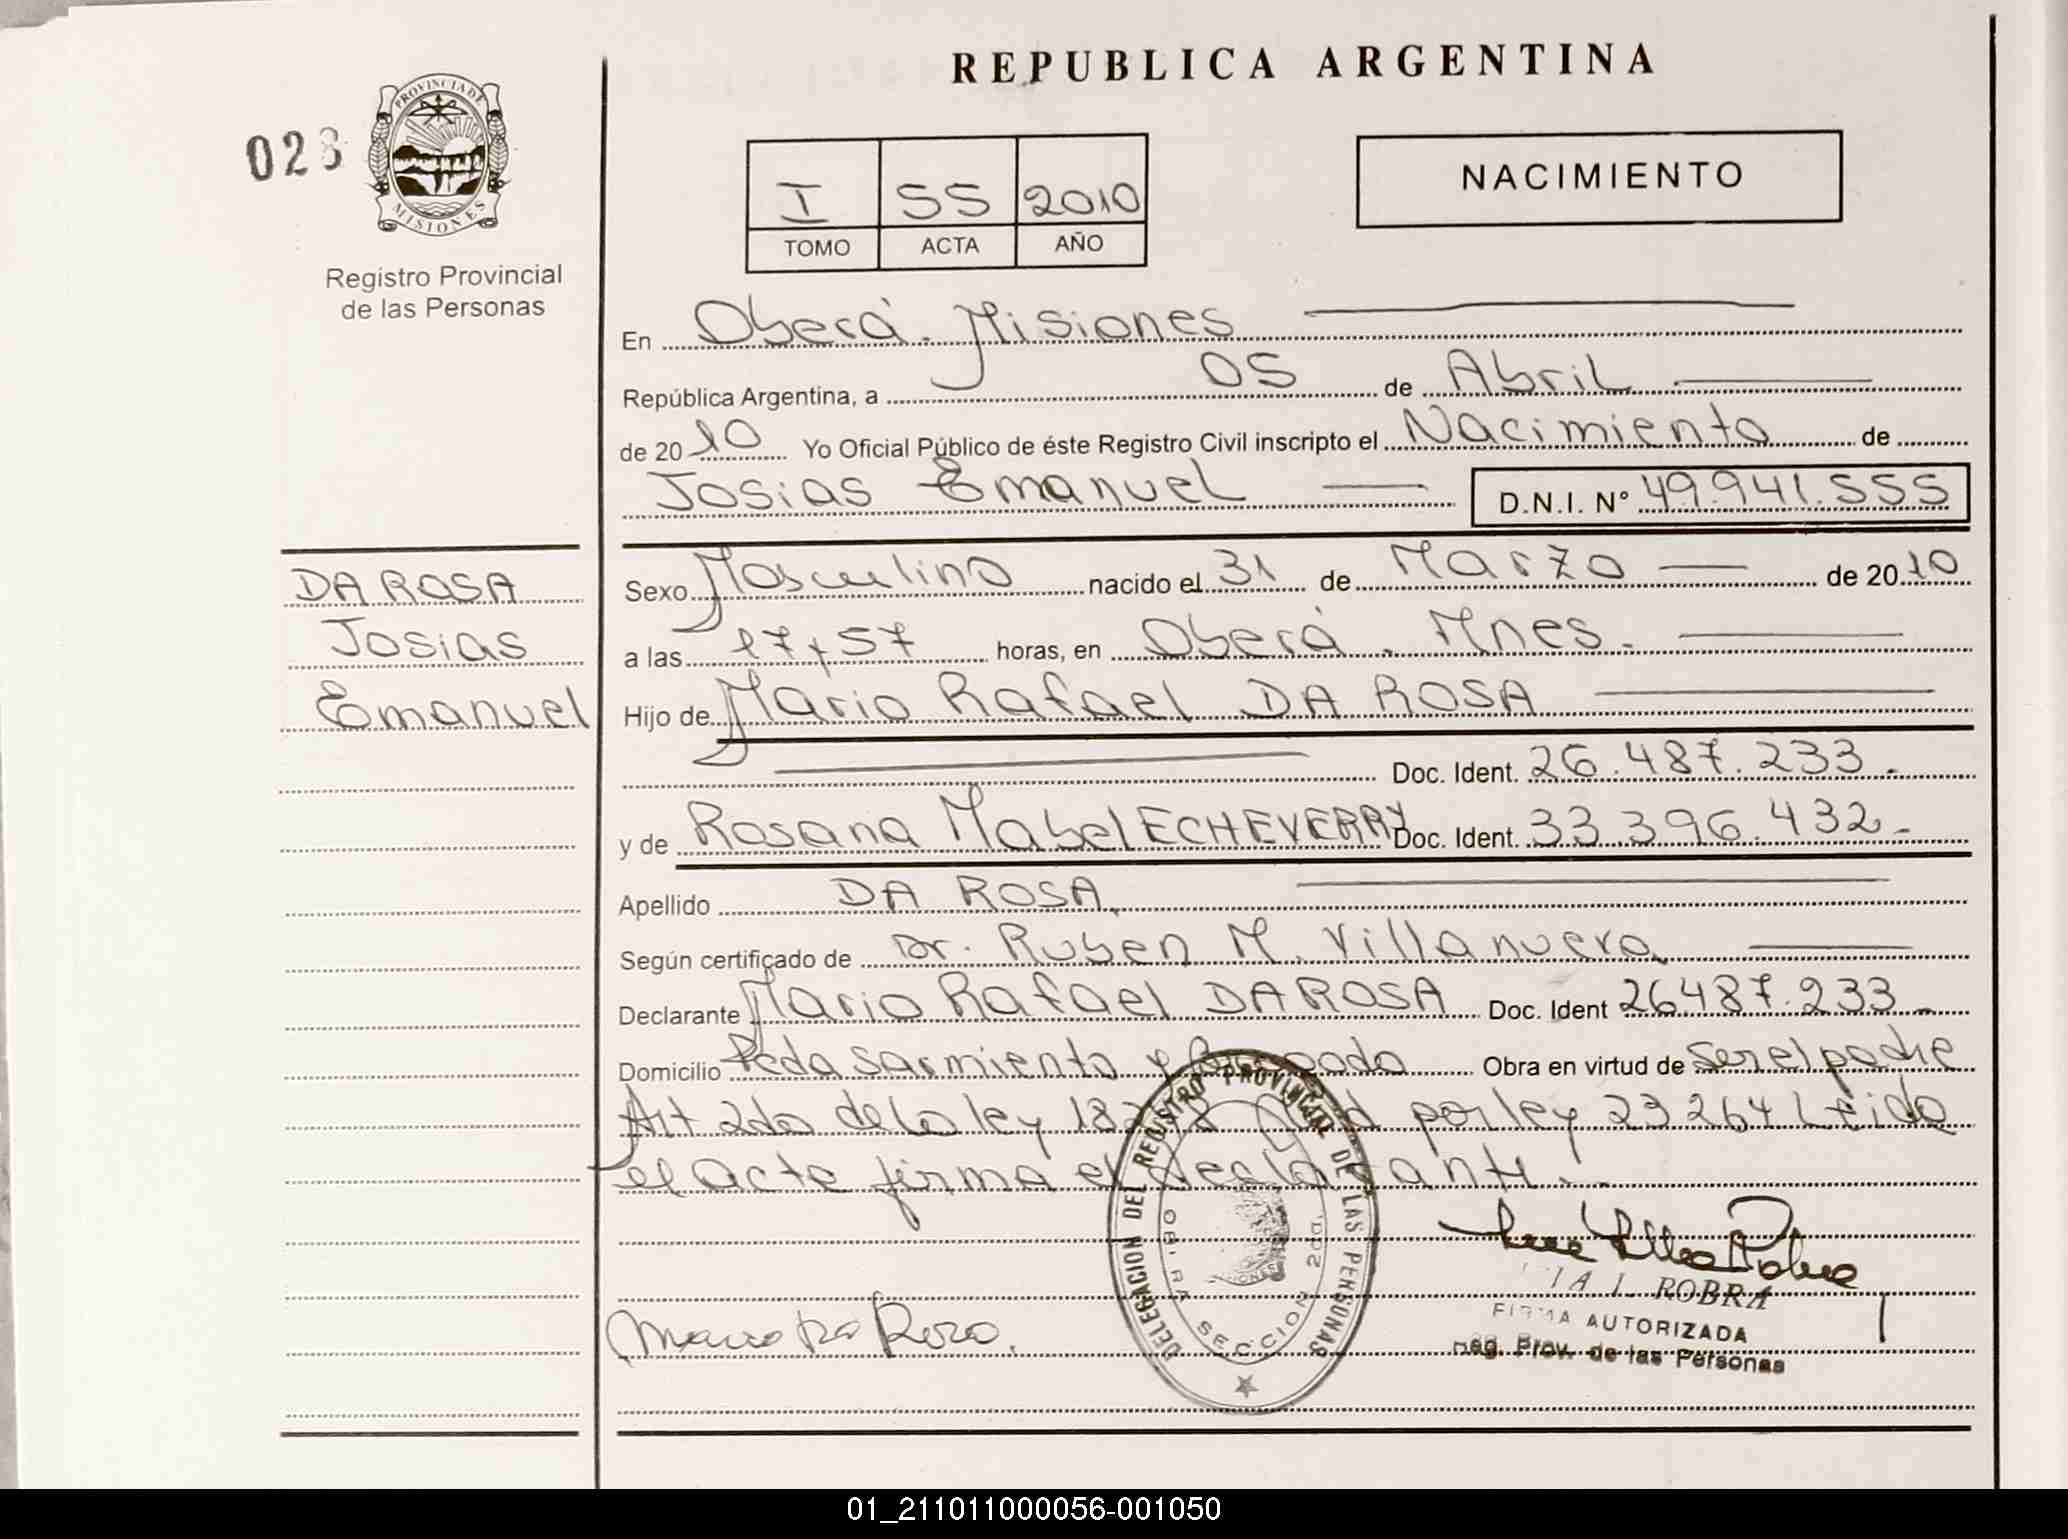 REPUBLICA ARGENTINA
028
PROVINCIA DE
MISIONES
Registro Provincial
de las Personas
I 55 2010
TOMO ACTA AÑO
NACIMIENTO
En Oberá. Misiones
República Argentina, a 05 de Abril
de 2010 Yo Oficial Público de éste Registro Civil inscripto el Nacimiento de
Josias Emanuel D.N.I. N° 49.941.555
DA ROSA
Josias
Emanuel
Sexo Masculino nacido el 31 de Marzo de 2010
a las 17 y 57 horas, en Oberá. Mnes.
Hijo de Mario Rafael DA ROSA
Doc. Ident. 26.487.233.
y de Rosana Mabel ECHEVERRY Doc. Ident. 33.396.432.
Apellido DA ROSA.
Según certificado de Dr. Ruben M. Villanueva
Declarante Mario Rafael DA ROSA Doc. Ident 26487.233
Domicilio Sarmiento y Obra en virtud de ser el padre
Art 2do de la ley 18248 por ley 23264 Leida
el acta firma el declarante.
DELEGACION DEL REGISTRO PROVINCIAL DE LAS PERSONAS
SECCION
Mario Da Rosa.
L. ROBRA
FIRMA AUTORIZADA
Reg. Prov. de las Personas
01_211011000056-001050